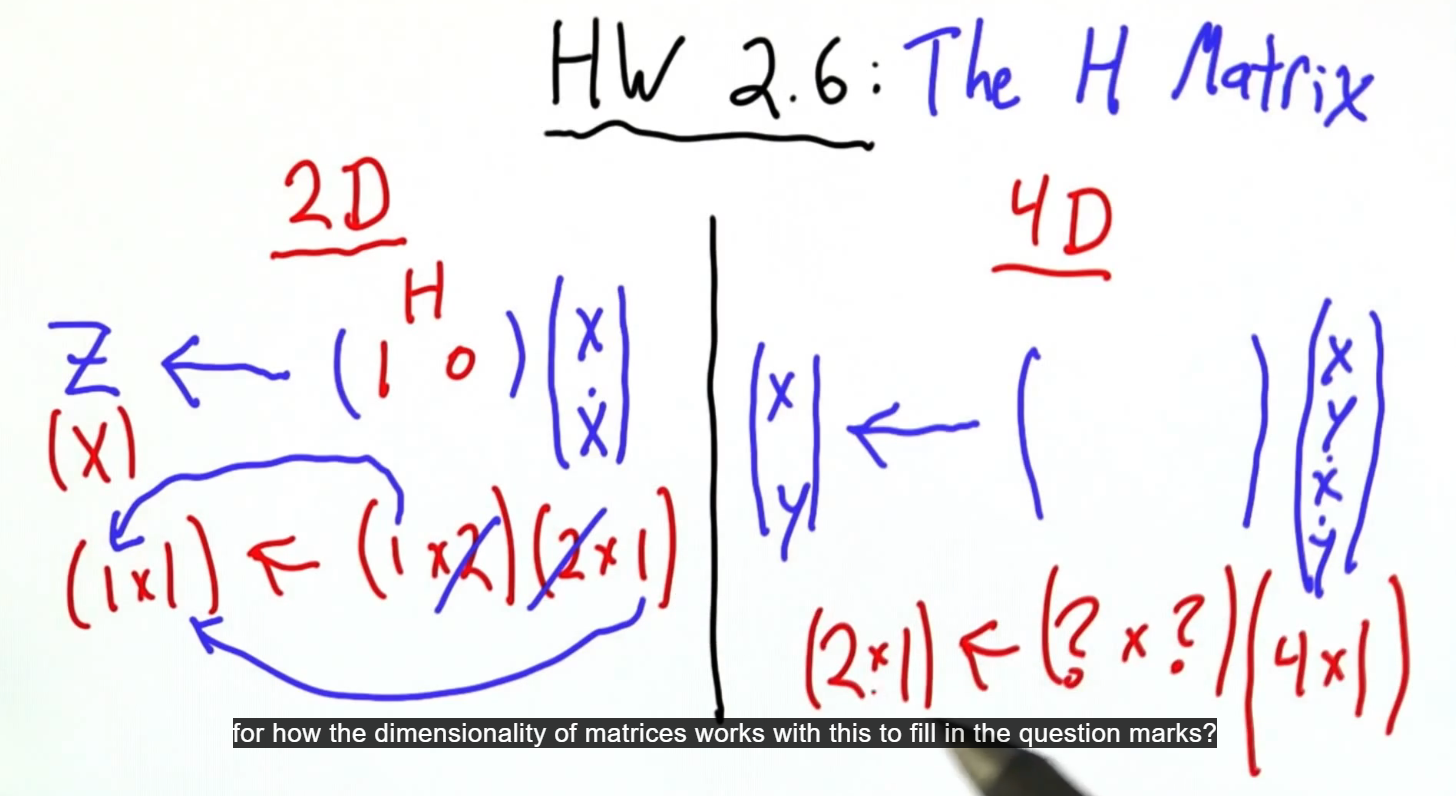 HW 2.6: The H Matrix
2D
H
Z ← (1 0) (x
ẋ)
(x)
(1x1) ← (1x2)(2x1)
4D
(x
y) ← ( ) (x
y
ẋ
ẏ)
(2x1) ← (? x ?)(4x1)
for how the dimensionality of matrices works with this to fill in the question marks?